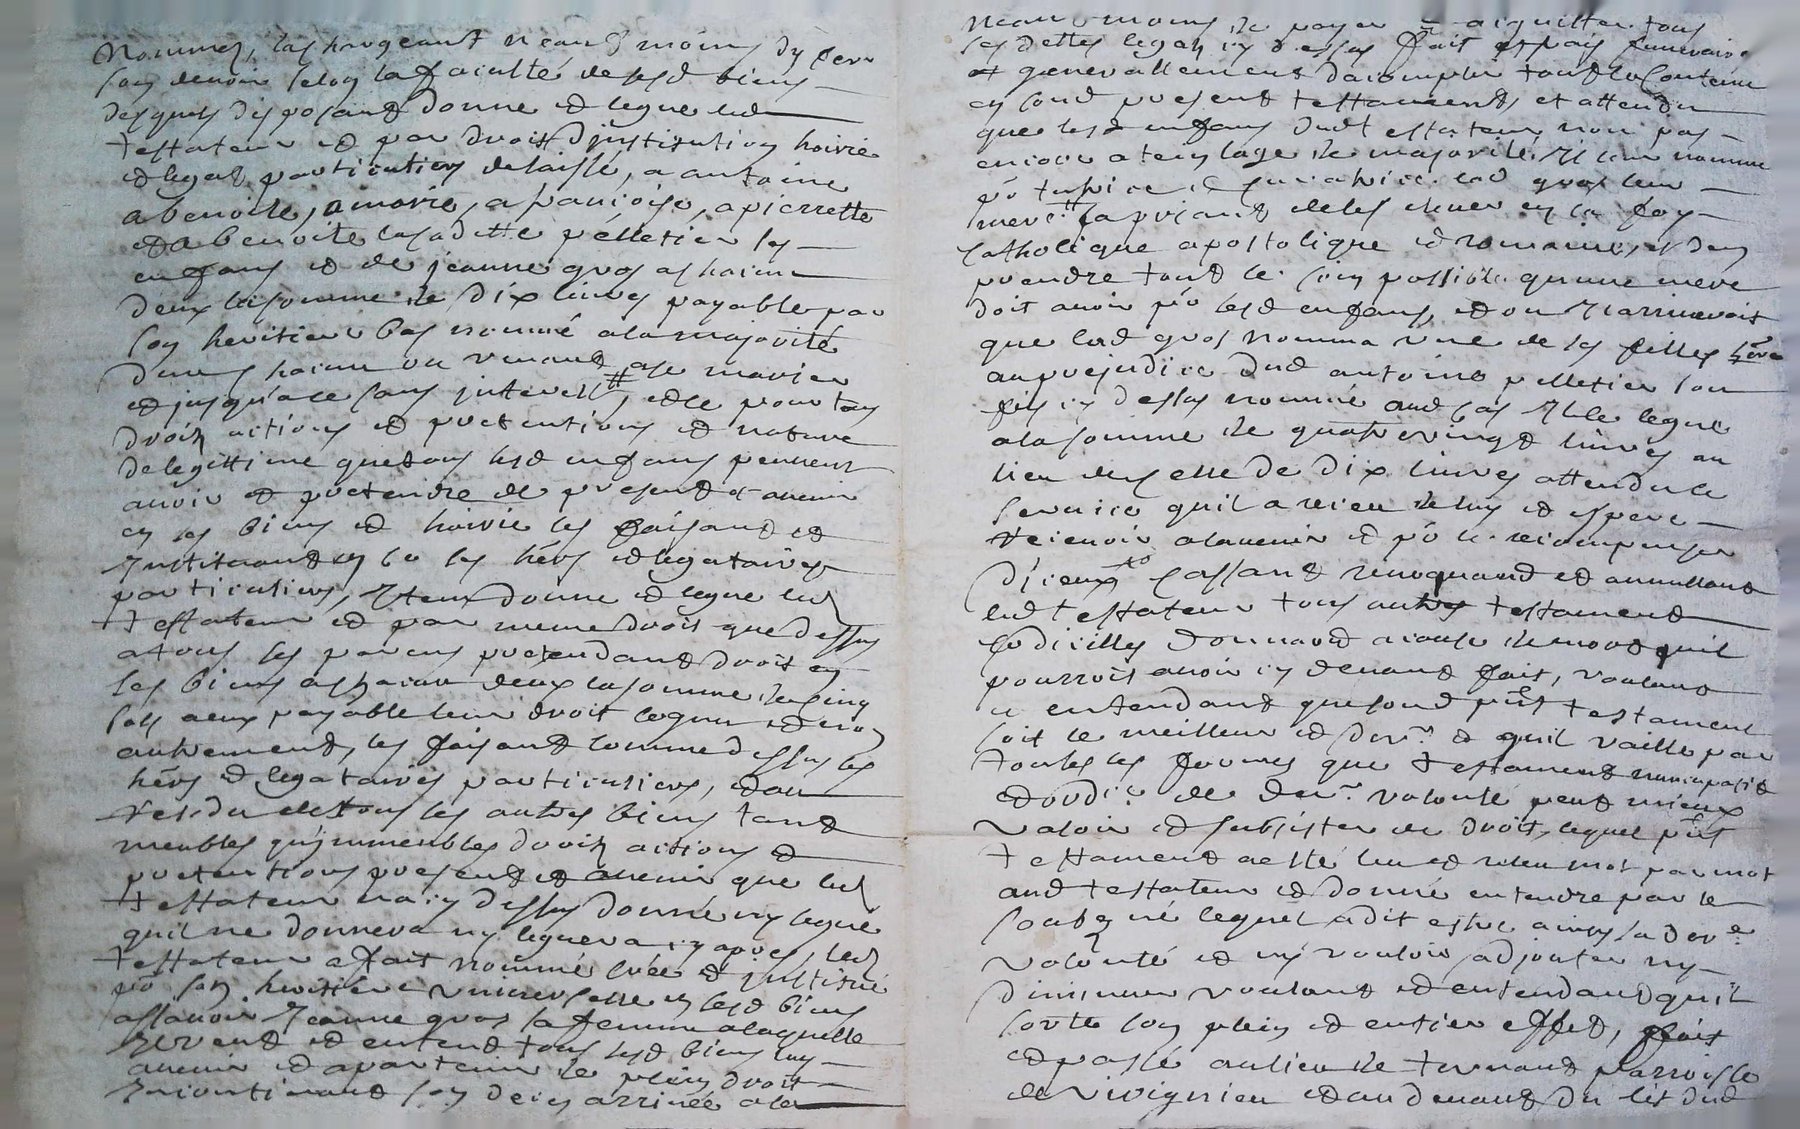 nommez, les chargeant neantmoins dy faire
son devoir selon la faculté de sesd biens
desquels disposant donne et legue led
testateur et par droit d'institution hoirie
et legat particulier delaissé, a antoine
a benoite, a marie, a françoise, a pierrette
et a benoite la cadette pelletier ses
enfans et de jeanne gros a chacun
deux la somme de dix livres payable par
son heritiere bas nommé a la majorité
d'un chacun ou venant a se marier
et jusqu'a ce sans interest, et ce pour tous
droits actions et pretentions et nature
de legittime que tous lesd enfans peuvent
avoir et pretendre de present et avenir
en ses biens et hoirie les faisant et
Instituant en ce ses hers et legataires
particuliers, Item donne et legue led
testateur et par meme droit que dessus
a tous ses parens pretendant droit en
ses biens a chacun deux la somme de cinq
sols a eux payable leur droit cogneu et non
autrement, les faisant comme dessus ses
hers et legataires particuliers, et au
residu de tous ses autres biens tant
meubles qu'jmmeubles droits actions et
pretentions present et avenir que led
testateur n'a cy dessus donné ny legué
quil ne donnera ny leguera cy apres, led
testateur a fait nommé créé et institué
po son heritiere universelle en sesd biens
assavoir Jeanne gros sa femme a laquelle
il veut et entend tous sesd biens luy
avenir et apartenir de plein droit
Incontinant son deces arrivée a la
neantmoins de payer et aiquitter tous
ses dettes legaz cy dessus fait et frais funeraires
et generallement dacomplir tout le contenu
en soud present testament, et attendu
que lesd enfans dudt testateur non pas
encore ateins lage de majorité Il leur nomme
po tutrice et curatrice lad gros leur
mere la priant de les elever en la foy
Catholique apostolique et romaine, et den
prendre tout le soin possible quune mere
doit avoir po lesd enfans, et ou Il arriveroit
que lad gros nomma une de ses filles here
au prejudice dud antoine pelletier son
fils cy dessus nommé aud cas Il le legue
a la somme de quatre vingt livres au
lieu de celle de dix livres attendu le
service quil a recu de luy et espere
recevoir a lavenir et po le recompenser
diceux Cassant revoquant et annullant
led testateur tous autres testament
Codicilles donnaond a cause de mort quil
pourroit avoir cy devant fait, voulant
et entendant que soud pnt testament
soit le meilleur et derr et quil vaille par
toutes les formes que testament nuncupatif
et ordre de derre volonté peut mieux
valoir et subsister de droit, lequel pnt
testament a esté leu et releu mot par mot
aud testateur et donné entendre par le
soubzné lequel a dit estre ainsy sa derre
volonté et ny vouloir adjouter ny
diminuer voulant et entendant quil
sorte son plein et entier effet, fait
et passé au lieu de ternant parroisse
de Virignieu et au devant du lit dud